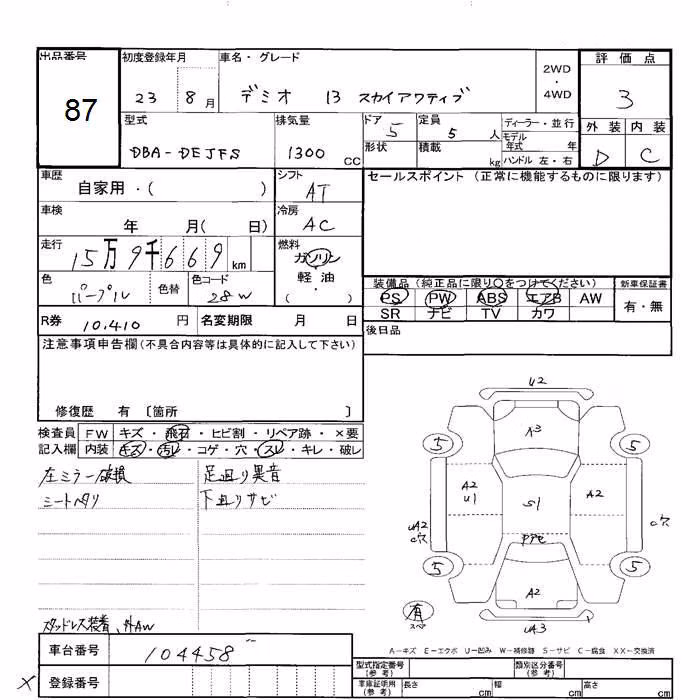 出品番号
87
初度登録年月
23 8 月
車名・グレード
デミオ 13 スカイアクティブ
2WD
・
4WD
評価点
3
外装 内装
D C
型式
DBA-DEJFS
排気量
1300 CC
ドア
5
定員
5 人
形状
積載
kg
ディーラー・並行
モデル
年式 年
ハンドル 左・右
車歴
自家用・( )
シフト
AT
セールスポイント (正常に機能するものに限ります)
車検
年 月( 日)
冷房
AC
走行
15万9千669 km
燃料
ガソリン
軽油
( )
色
パープル
色替
色コード
28W
装備品 (純正品に限り○をつけてください)
PS PW ABS エアB AW
SR ナビ TV カワ
新車保証書
有・無
R券 10,410 円
名変期限 月 日
後日品
注意事項申告欄(不具合内容等は具体的に記入して下さい)
修復歴 有 〔箇所 〕
検査員 FW キズ・飛石・ヒビ割・リペア跡・×要
記入欄 内装 キズ・汚レ・コゲ・穴・スレ・キレ・破レ
左ミラー破損
シートヘタリ
足廻り異音
下廻りサビ
スタッドレス装着、外AW
U2
A3
5
5
A2
U1
S1
A2
UA2
C穴
C穴
5
5
A2
有
スペア
UA3
A-キズ E-エクボ U-凹み W-補修跡 S-サビ C-腐食 XX-交換済
車台番号 104458
X
登録番号
型式指定番号
(参考)
類別区分番号
(参考)
車庫証明用
(参考)
長さ cm
幅 cm
高さ cm